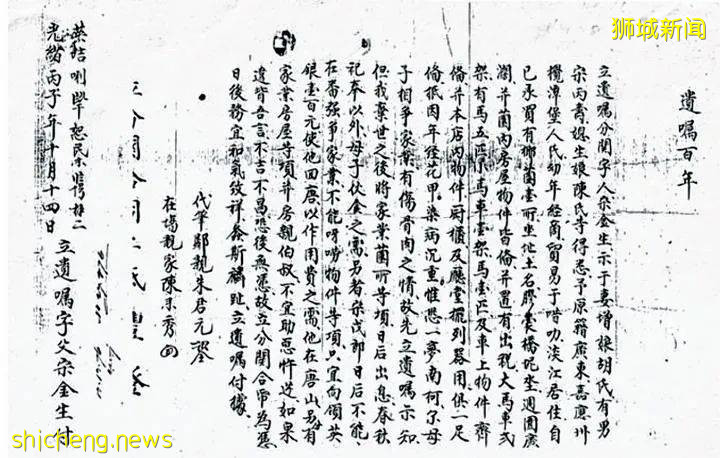 狮城新闻
遺囑百年
立遺囑分關字人宗金生示于妻增娘胡氏有男
宗丙喬媳生娘陳氏等得悉予原籍廣東嘉應州
潭堡人氏幼年經商貿易于喏叻淡江居住自
已承買有椰園壹所坐址土名膠橋坐週圍廣
濶并園內房屋物件皆備并置有出稅大馬車弍
架有馬五匹小馬車壹架馬壹匹及車上物件齊
備并本店內物件廚櫃及廳堂擺列器用俱一足
備祇因年經花甲染病沉重惟恐一夢南柯尔母
子相爭家業有傷骨肉之情故先立遺囑示知
但我棄世之後將家業園所等項日后出息春秋
祀奉以外母子伙食之需另者宗戊郎日后不能
在番強爭家業不能物件等項只宜向領英
銀壹百元使他回唐以作用費之需他在唐山另有
家業房屋等項并房親伯叔不宜助惡忤逆如果
違背吾言不吉不昌恐後無憑故立分關合同為憑
日後務宜和氣致祥螽斯麟趾立遺囑付據
代筆鄰親朱君元
在場親家陳秀
光緒丙子年十月十四日 立遺囑字父宗金生付
shicheng.news